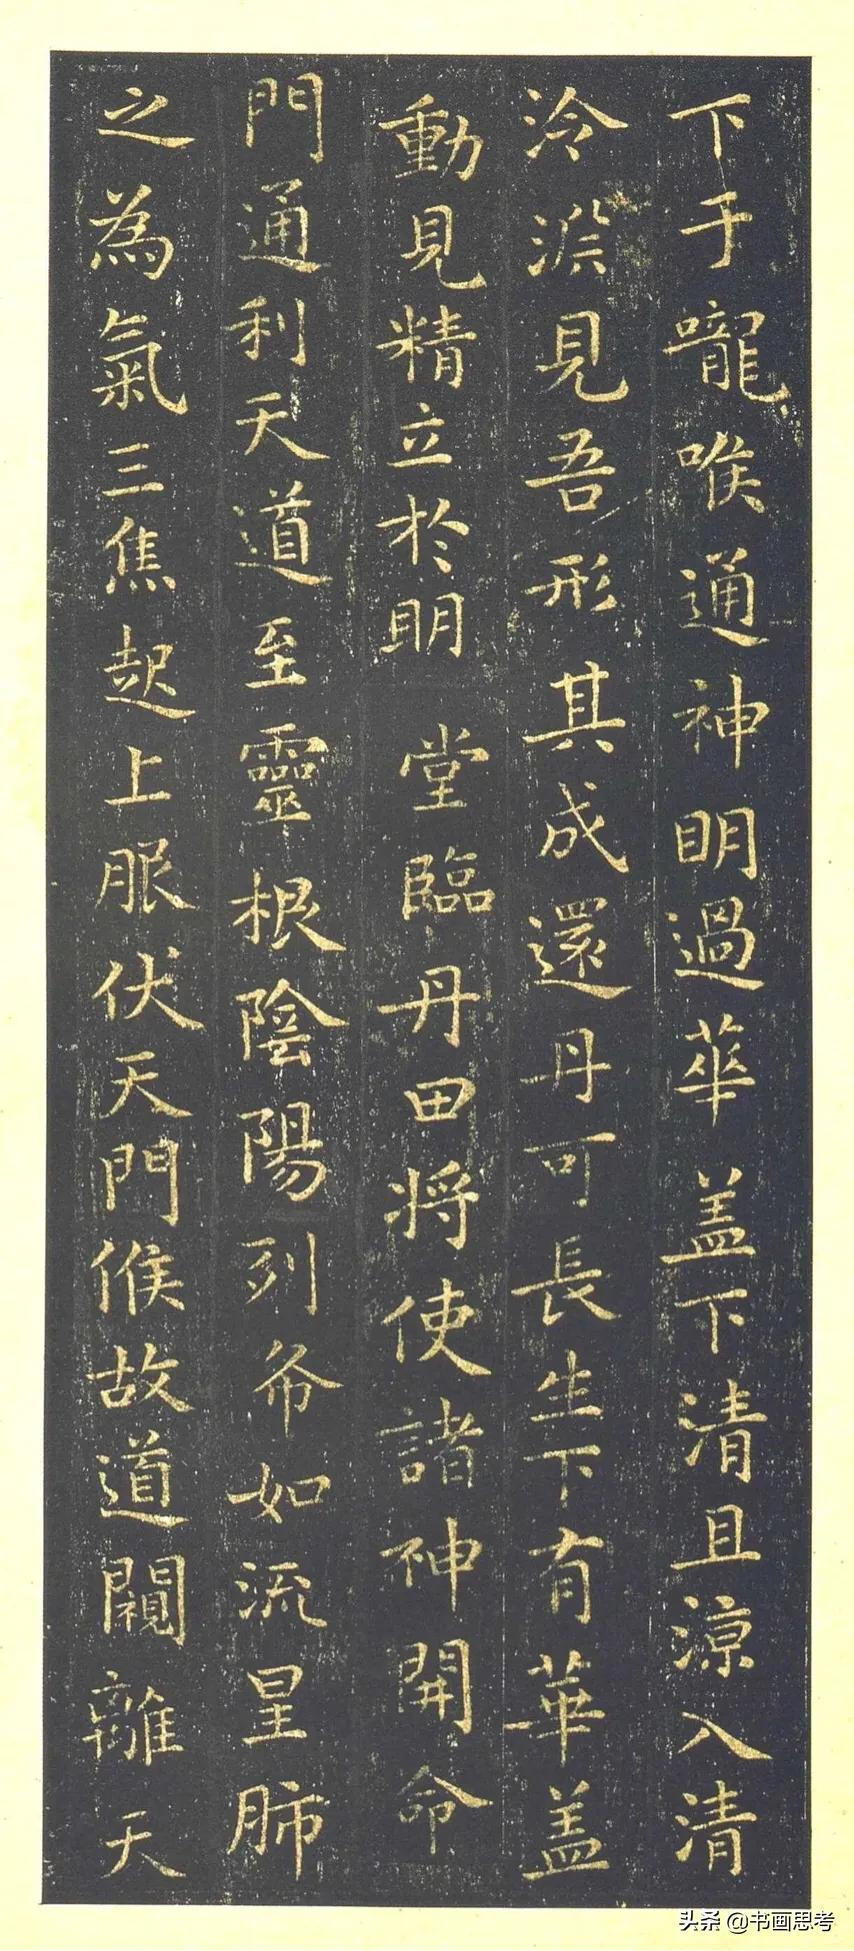 下于嚨喉通神明過華盖下清且涼入清
泠淵見吾形其成還丹可長生下有華盖
動見精立於明堂臨丹田将使諸神開命
門通利天道至靈根陰陽列布如流星肺
之為氣三焦起上服伏天門候故道闚離天
头条 @书画思考